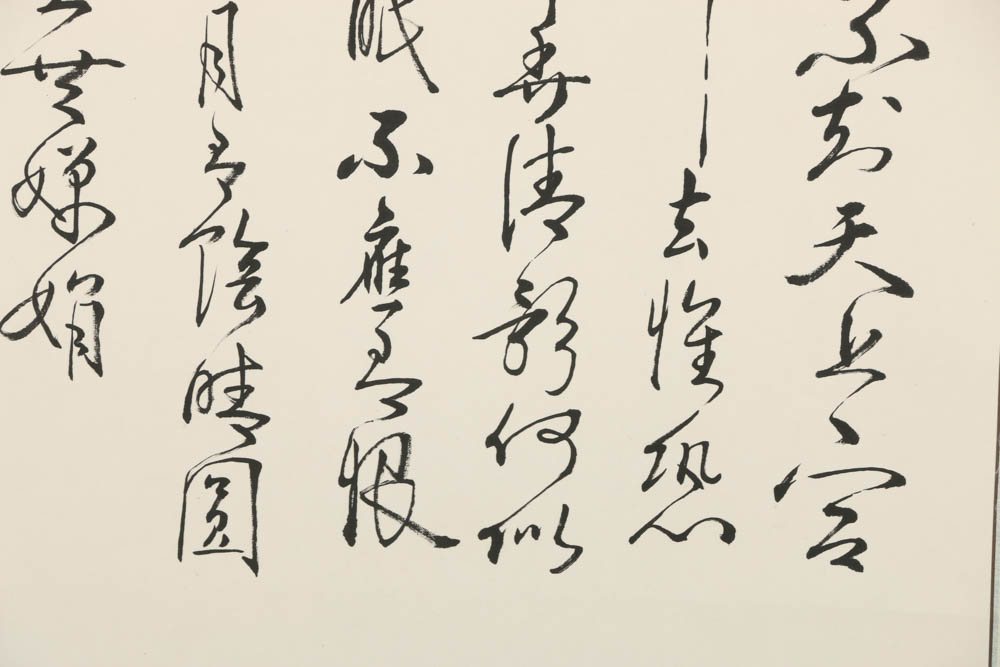 不知天上宮
去惟恐
弄清影何似
眠不應有恨
月有陰晴圓
共嬋娟